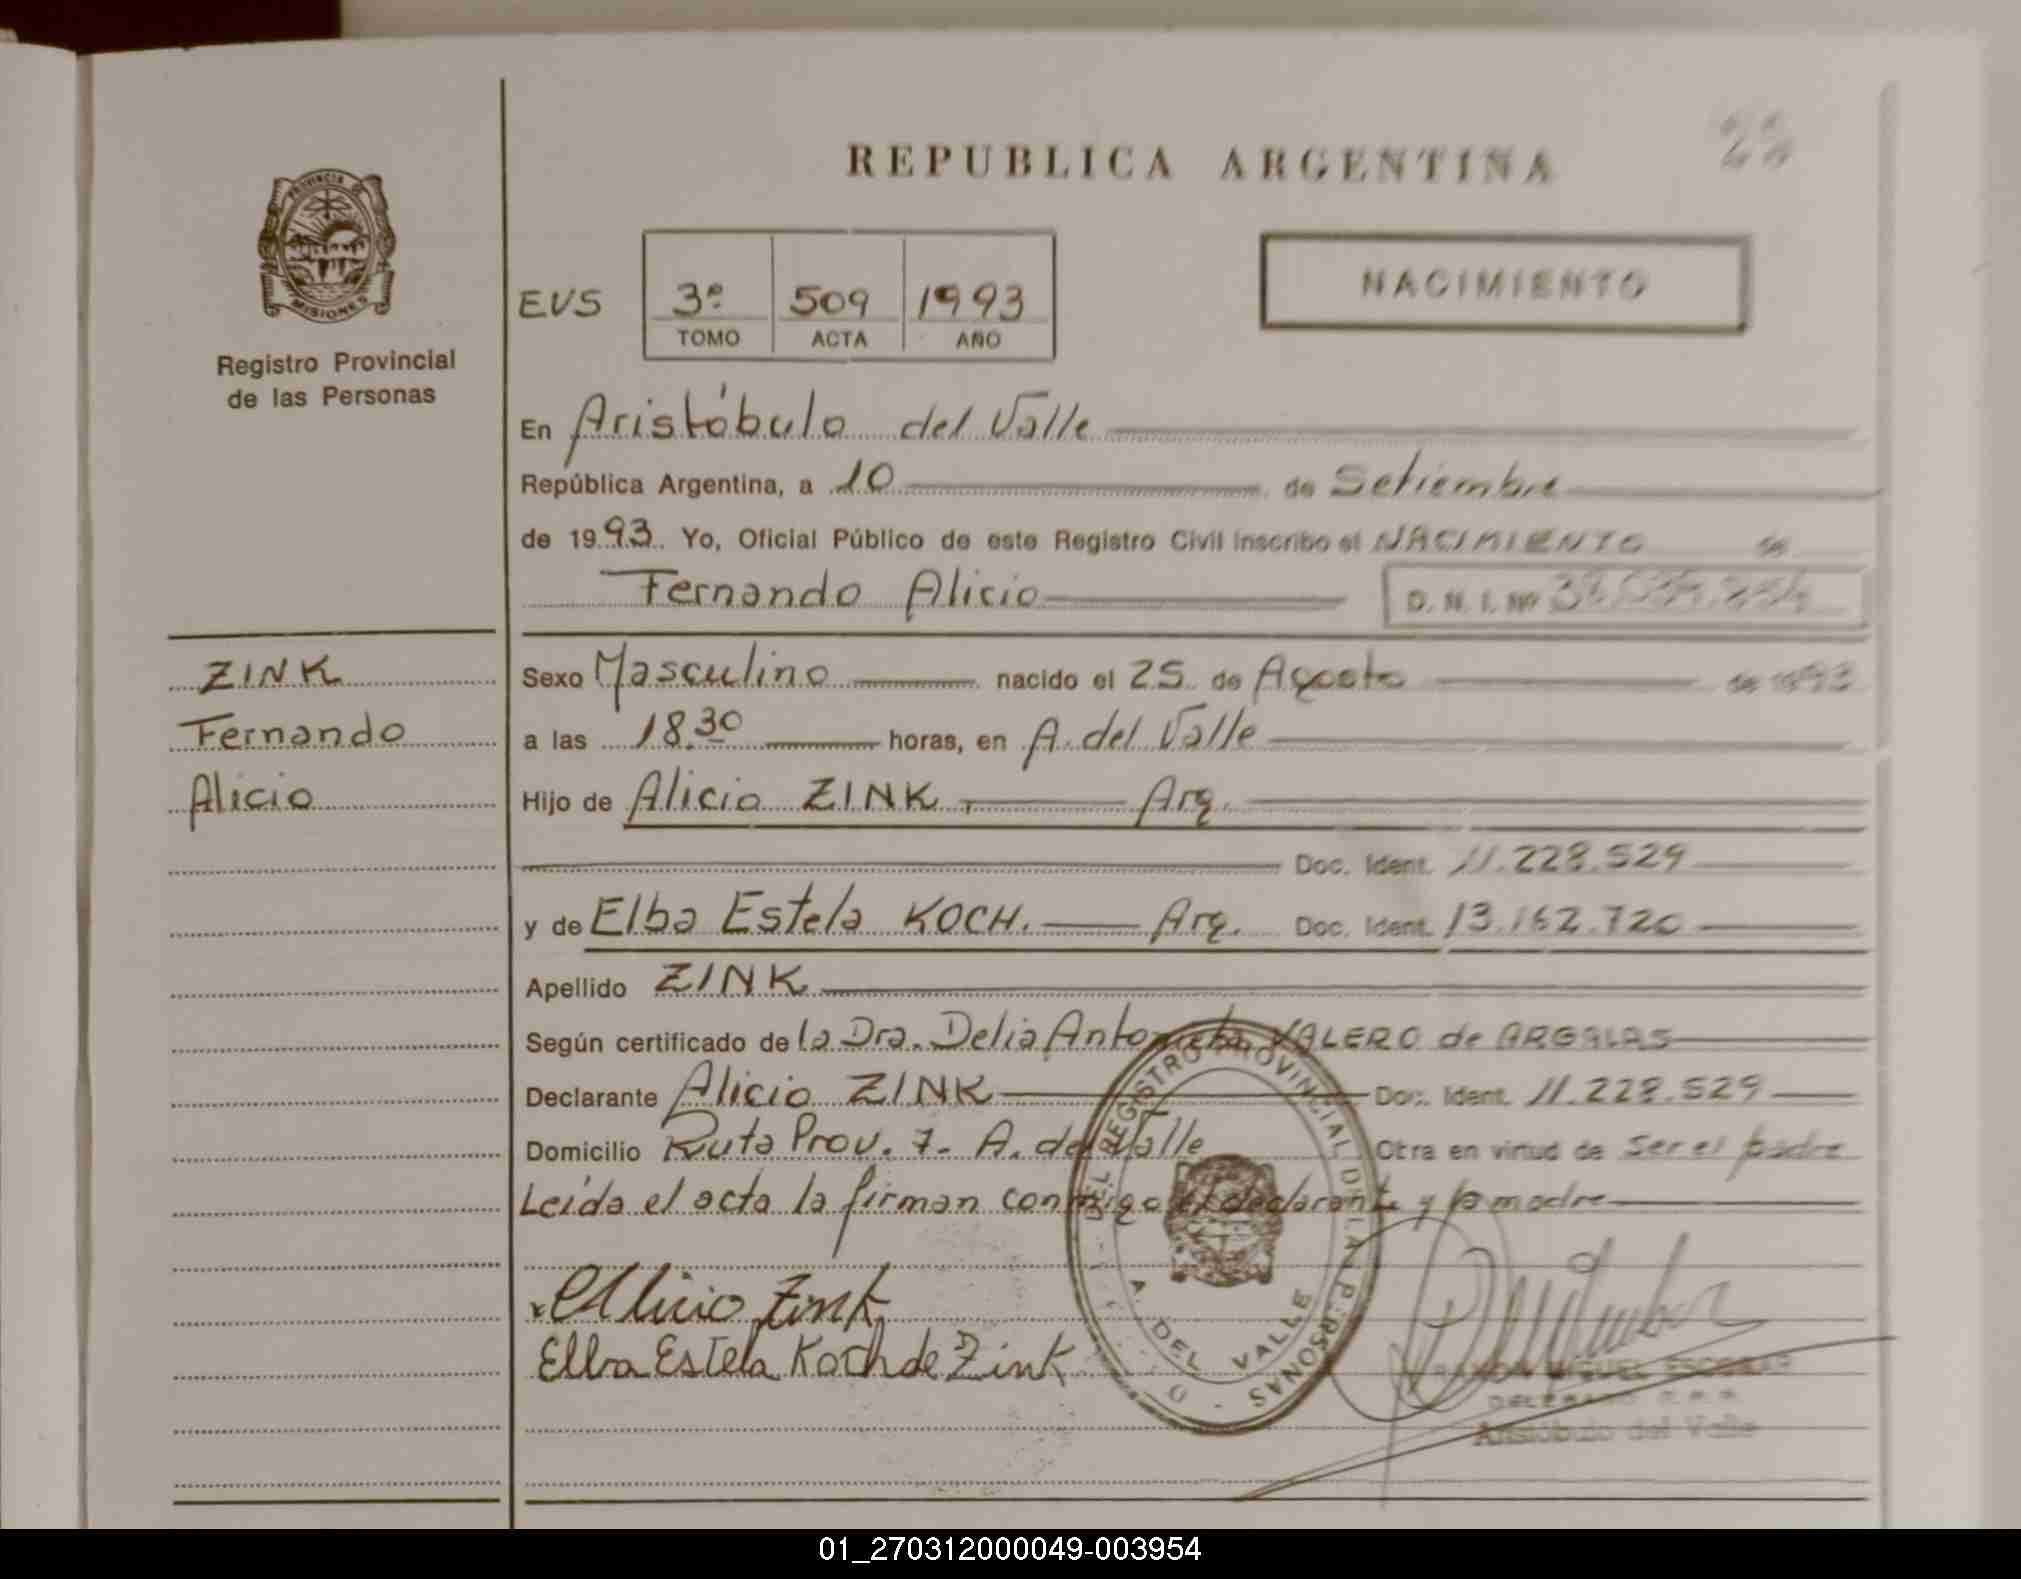 REPUBLICA ARGENTINA
PROVINCIA DE
MISIONES
Registro Provincial
de las Personas
NACIMIENTO
EVS 3º 509 1993
TOMO ACTA AÑO
En Aristóbulo del Valle
República Argentina, a 10 de Setiembre
de 1993. Yo, Oficial Público de este Registro Civil inscribo el NACIMIENTO de
Fernando Alicio D. N. I. Nº
ZINK
Fernando
Alicio
Sexo Masculino nacido el 25 de Agosto de 1993
a las 18.30 horas, en A. del Valle
Hijo de Alicio ZINK Arg.
Doc. Ident. 11.228.529
y de Elba Estela KOCH. Arg. Doc. Ident. 13.162.720
Apellido ZINK
Según certificado de la Dra. Delia Antonieta VALERO de ARGALAS
Declarante Alicio ZINK Doc. Ident. 11.228.529
Domicilio Ruta Prov. 7- A. del Valle Otra en virtud de ser el padre
Leída el acta la firman conmigo el declarante y la madre
Alicio Zink
Elba Estela Koch de Zink
DEL REGISTRO PROVINCIAL DE LAS PERSONAS
A. DEL VALLE
RAMON MIGUEL ESCOBAR
DELEGADO R.P.P.
Aristóbulo del Valle
01_270312000049-003954